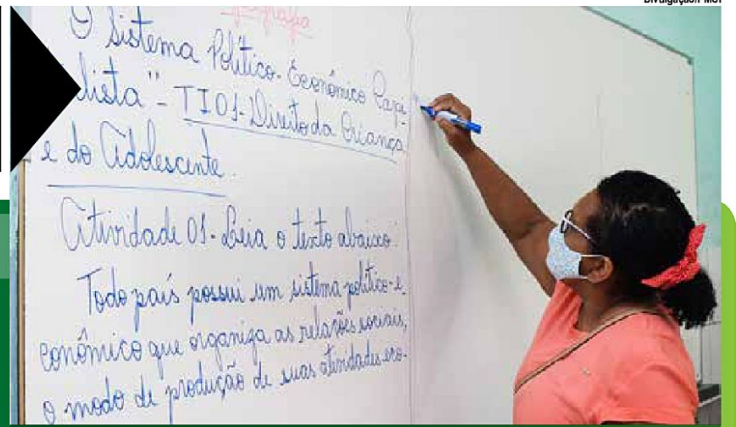 Divulgação/ MCT
Geografia
O Sistema Político-Econômico Capi-
lista" - TI01-Direito da Criança
e do Adolescente.
Atividade 01- Leia o texto abaixo:
Todo país possui um sistema político-e
conômico que organiza as relações sociais,
o modo de produção de suas atividades eco-